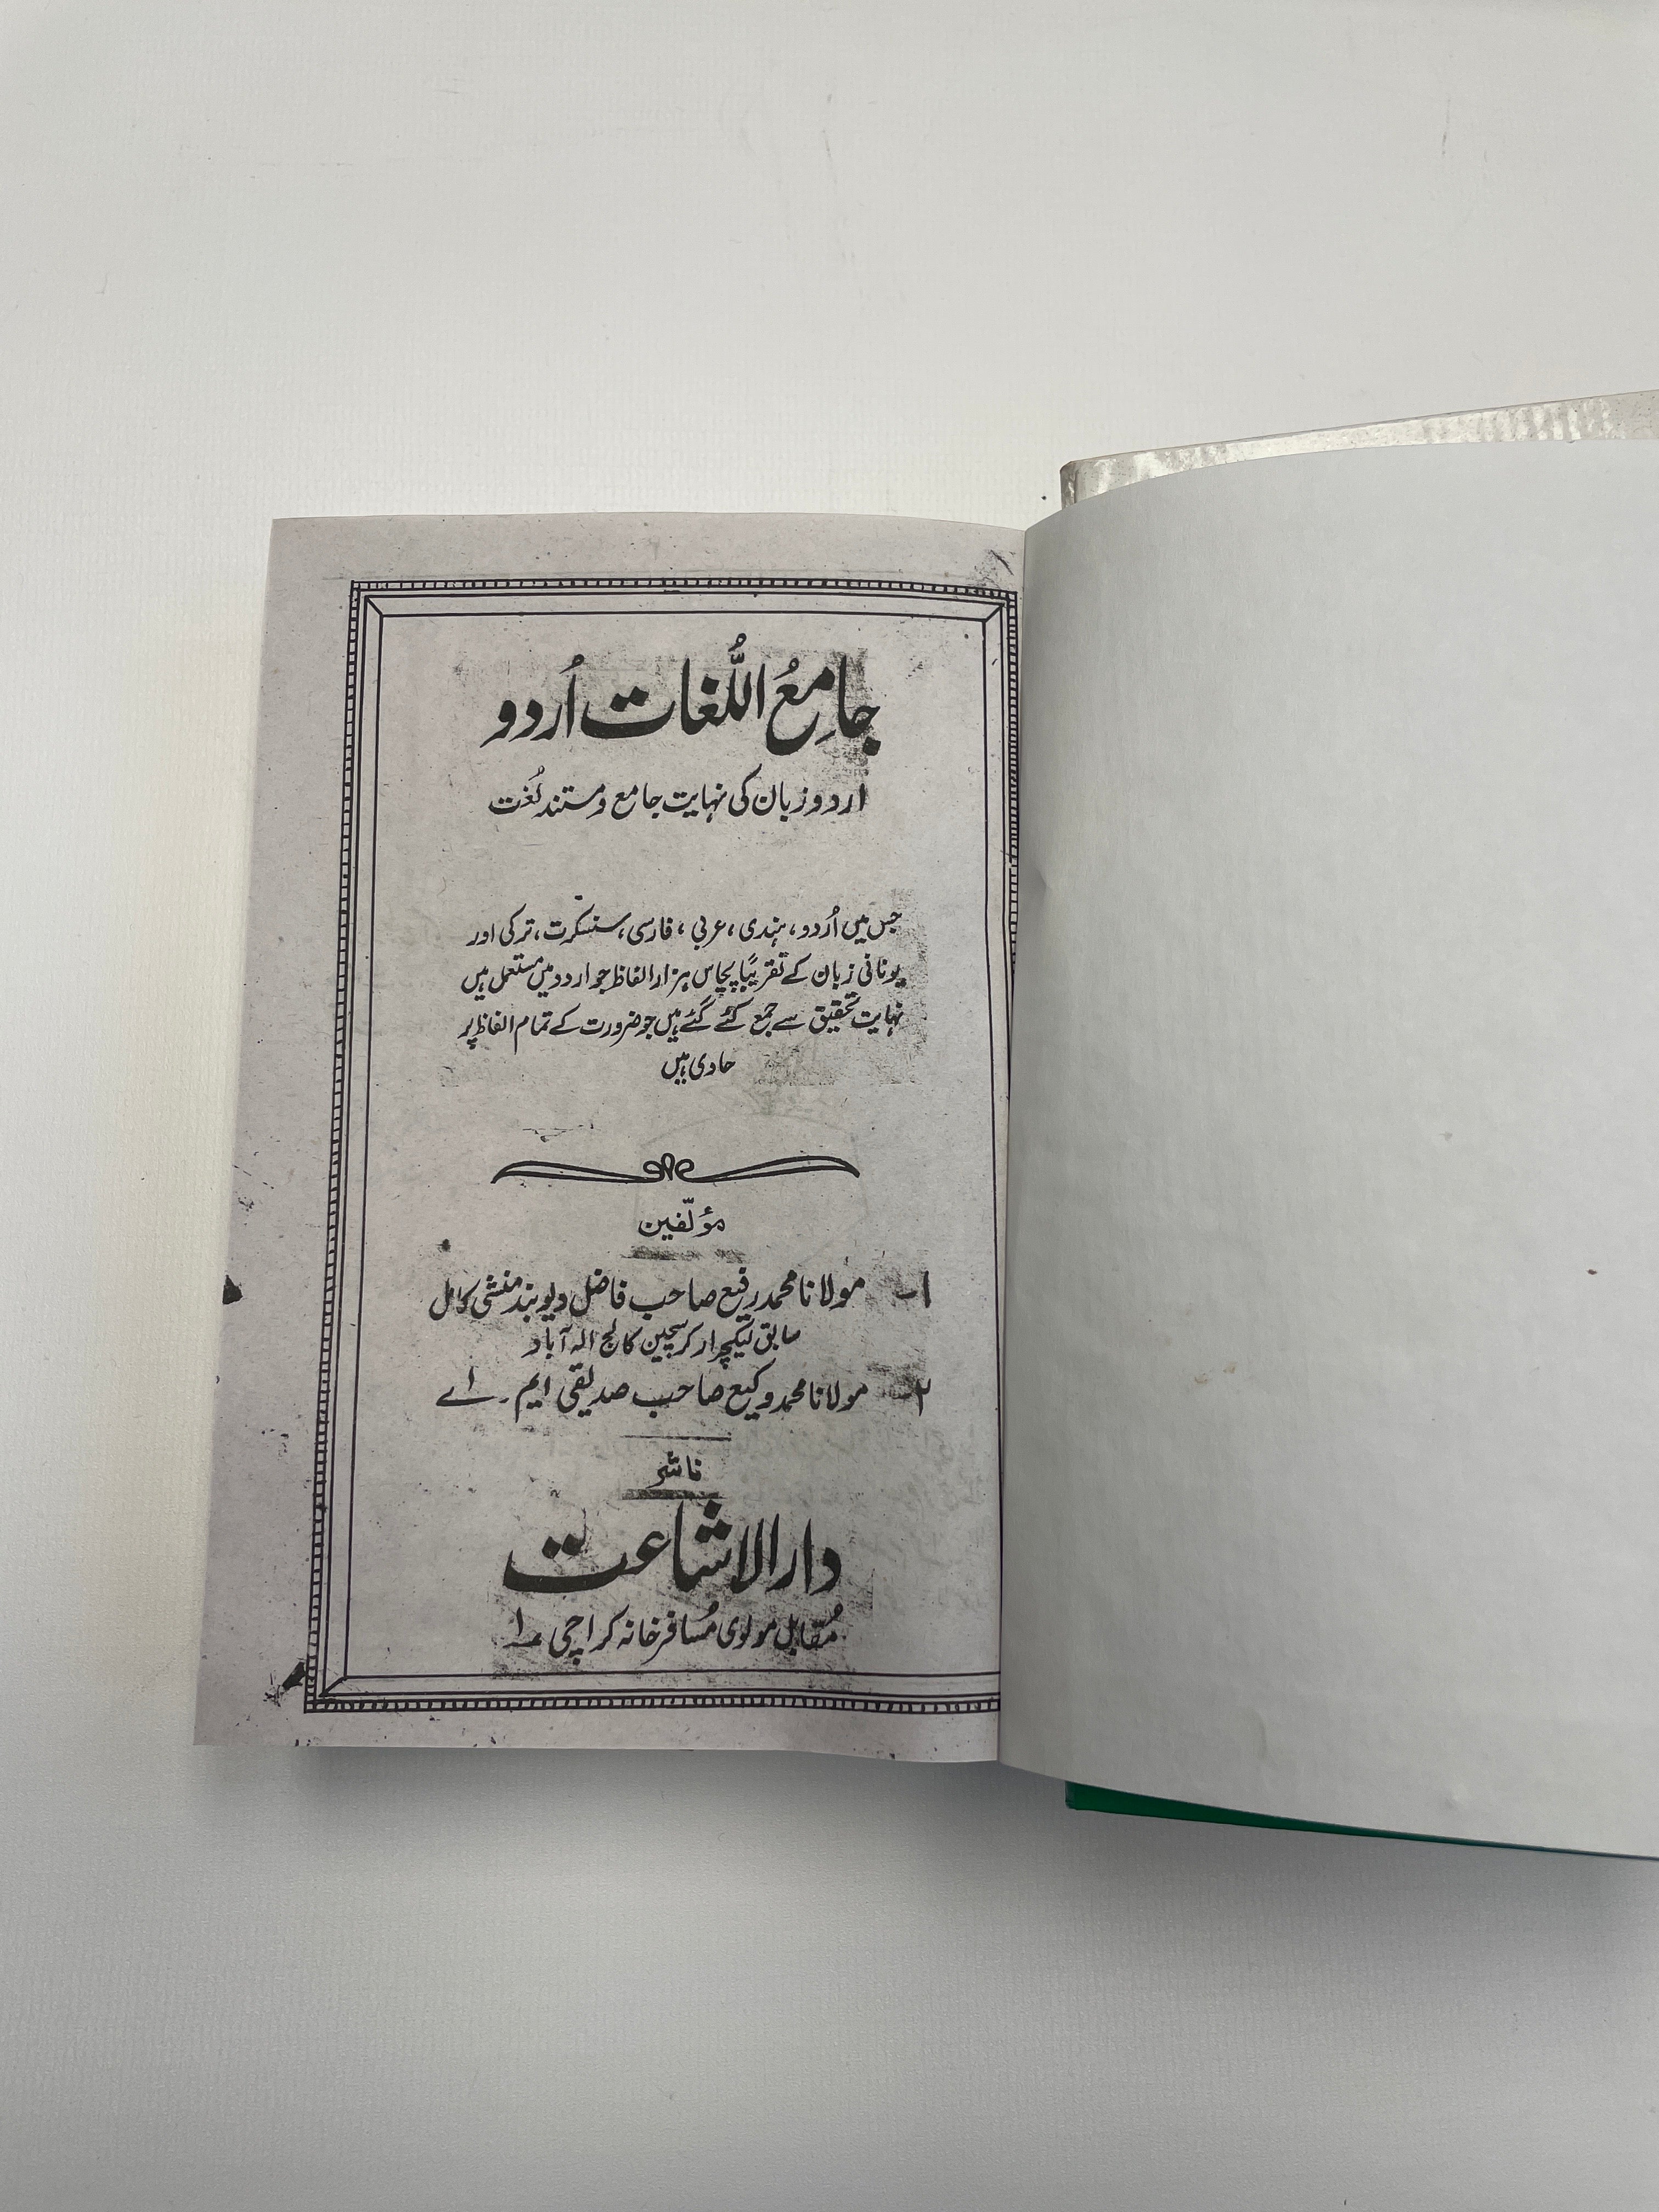 جامِعُ اللُّغات اُردو
اردو زبان کی نہایت جامع و مستند لُغت
جس میں اُردو، ہندی، عربی، فارسی، سنسکرت، ترکی اور
یونانی زبان کے تقریباً پچاس ہزار الفاظ جو اردو میں مستعمل ہیں
نہایت تحقیق سے جمع کئے گئے ہیں جو ضرورت کے تمام الفاظ پر
حاوی ہیں
مؤلّفین
۱ـ مولانا محمد رفیع صاحب فاضل دیوبند منشی کامل
سابق لیکچرار کرسچین کالج الہ آباد
۲ـ مولانا محمد وکیع صاحب صدیقی ایم۔ اے
ناشر
دارالاشاعت
مُقابل مولوی مُسافر خانہ کراچی ۱